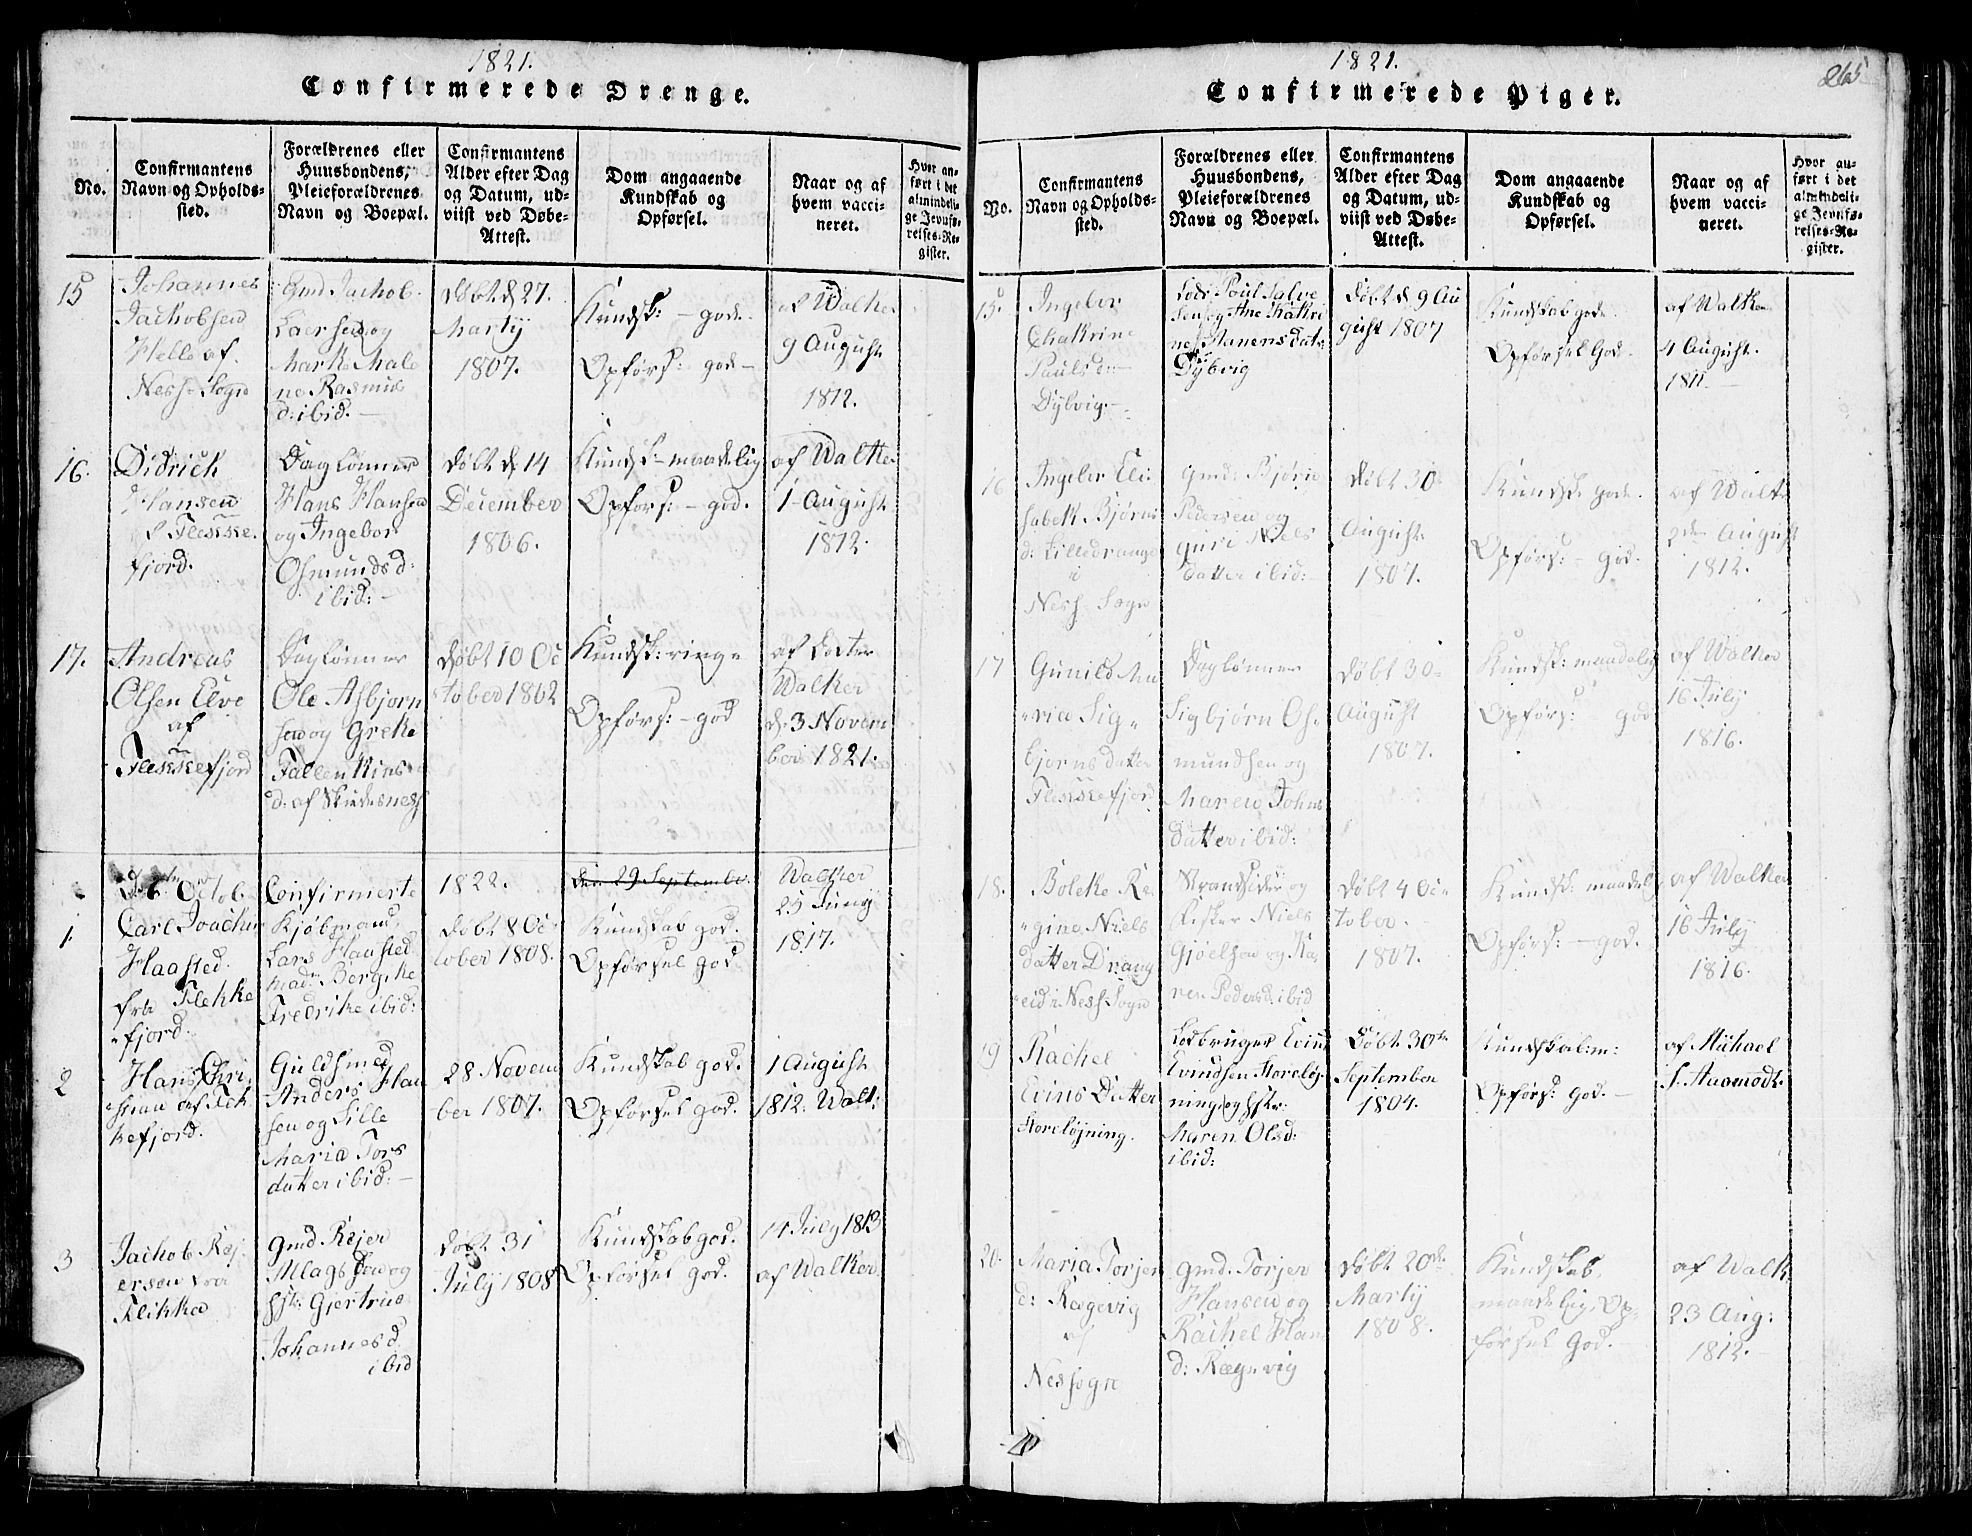 1821.
Confirmerede Drenge.
No.
Confirmantens
Navn og Opholds-
sted.
Forældrenes eller
Huusbondens,
Pleieforældrenes
Navn og Boepæl.
Confirmantens
Alder efter Dag
og Datum, ud-
viist ved Døbe-
Attest.
Dom angaaende
Kundskab og
Opførsel.
Naar og af
hvem vacci-
neret.
Hvor an-
ført i det
almindeli-
ge Jevnfø-
relses-Re-
gister.
15
Johannes
Jachobsen
Helle af
Ness-Sogn
Gmd Jachob
Laersen og
Marke Male
ne Rasmus
d: ibid.-
døbt d 27.
Martij
1807.
Kundsk: - gode.
Opførs: god-
af Walke
9 August
1812.
16.
Didrich
Hansen
Flekke-
fjord.
Daglønner
Hans Hansen
og Ingebor
Osmunds d:
ibid:-
døbt d 14
December
1806.
Kundsk- maadelig
Opførs: - god.
af Walke
1 August
1812.
17.
Andreas
Olsen Elve
af
Flekkefjord
Daglønner
Ole Asbjorn
sen og Grete
Tallenkins
d: af Skudesness
døbt 10 Oc
tober 1802
Kundsk: ringe
Opførs: - god
af Docter
Walker
d: 3 Novem
ber 1821.
D. 6 Octob.
Confirmerte
1822.
den 29 September
1.
Carl Joachim
Haasted
fra Flekke
fjord.
Kjøbmand
Lars Haasted
Mad: Bergithe
Fredrike ibid:
døbt 8 Oc
tober 1808.
Kundskab god.
Opførsel god
Walker
25 Junij
1817.
2
Hans Chri-
stian af Flek
kefjord.
Guldsmed
Anders Han
sen og Sille
Maria Tors
datter ibid:-
28 Novem
ber 1807.
Kundskab god.
Opførsel god.
1 August
1812: Walk:
3
Jachob Rej-
ersen fra
Flikka
gmd Rejer
Mlagsen og
hstr: Gjertrud
Johannesd
ibid
døbt 31
July 1808
Kundskab god.
Opførsel god.
14 July 1813
af Walker
1821.
265
Confirmerede Piger.
No.
Confirmantens
Navn og Opholds-
sted.
Forældrenes eller
Huusbondens,
Pleieforældrenes
Navn og Boepæl.
Confirmantens
Alder efter Dag
og Datum, ud-
viist ved Døbe-
Attest.
Dom angaaende
Kundskab og
Opførsel.
Naar og af
hvem vacci-
neret.
Hvor an-
ført i det
almindeli-
ge Jevnfø-
relses-Re-
gister.
15.
Ingebor
Chatrine
Pauls d-
Dybvig.-
Lods Poul Salve
sen og Ane Kathri
ne Manensdatr
Dybvig
døbt d 9 Au
gust 1807
Kundskab gode.
Opførsel God.
af Walker
4 August.
1811.
16
Ingebor Eli-
sabet Bjørns
d: Lilledrange
i
Ness-Sogn
gmd: Bjørn
Pedersen og
Guri Niels
datter ibid:
døbt 30
August
1807.
Kundsk gode.
Opførs: - god.
af Walk
2den August
1812.
17
Gunild Ma
ria Sig-
bjornsdatter
Flekkefjord
Daglønner
Sigbjørn Os-
mundsen og
Maren Johns
datter ibid:
døbt 30
August
1807.
Kundsk: maadelig
Opførs: god
af Walker
16 July
1816.
18.
Bolete Re-
gine Niels
datter Drang
eid i Ness-Sogn
Strandsider og
Fisker Niels
Gjøelsen og Ka
ren Pedersd: ibid
døbt 4 Oc-
tober.
1807.
Kundsk: maadelig
Opførs: - god.
af Walker
16 July
1816.
19
Rachel
Evins Datter
Storeløjning.
Lodbruger Evin
Evindsen Storeløj-
ning og hstr:
Maren Olsd:
ibid:
Døbt 30te
September
1804.
Kundskab: m:
Opførs: God.-
af Michael
S. Aasmodt.
20.
Maria Torjer
d: Rægevig
af
Nessogn
gmd. Torjer
Hansen og
Rachel Han
d: Rægevig
døbt 20de
Martij
1808.
Kundskab.
maadelig. Op-
førsel God.-
af Walk
23 Aug:
1812.-